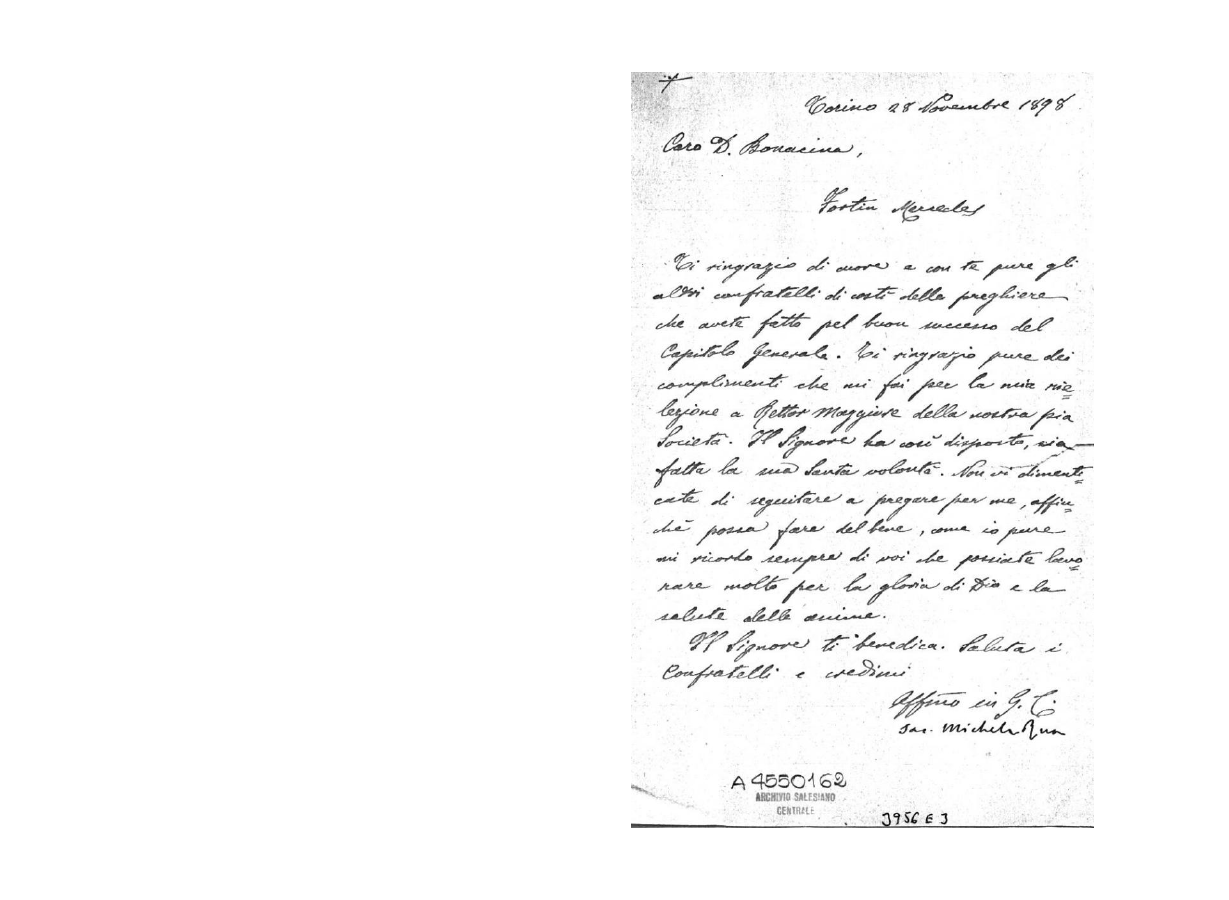 Torino 28 Novembre 1898
Caro D. Bonacina,
Fortin Mercedes
Ti ringrazio di cuore e con te pure gli
altri confratelli di costì delle preghiere
che avete fatto pel buon successo del
Capitolo Generale. Ti ringrazio pure dei
complimenti che mi fai per la mia rie=
lezione a Rettor Maggiore della nostra pia
Società. Il Signore ha così disposto, sia
fatta la sua Santa volontà. Non vi dimenti=
cate di seguitare a pregare per me, affin=
chè possa fare del bene, come io pure
mi ricordo sempre di voi che possiate lavo=
rare molto per la gloria di Dio e la
salute delle anime.
Il Signore ti benedica. Saluta i
Confratelli e credimi
Affmo in G. C.
Sac. Michele Rua
A 4550162
ARCHIVIO SALESIANO
CENTRALE
3956 E 3